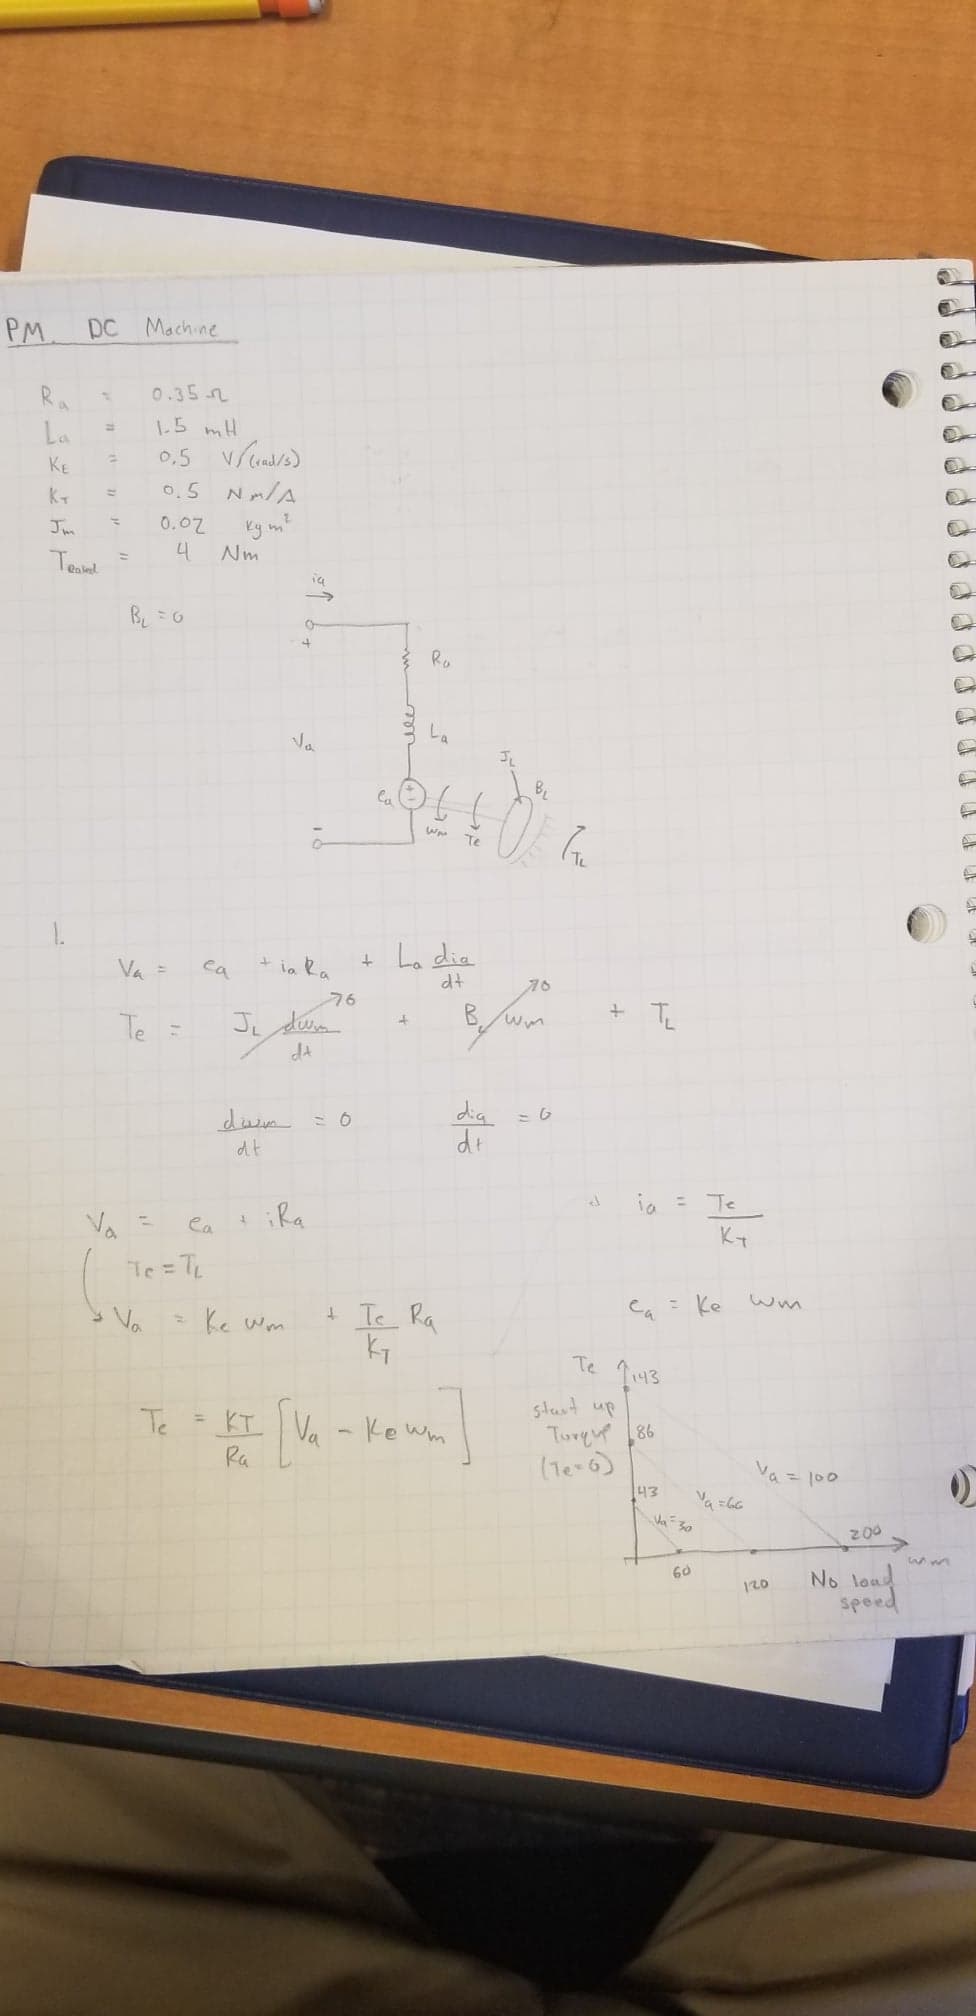 PM. DC Machine
Ra = 0.35 Ω
La = 1.5 mH
KE = 0.5 V/(rad/s)
KT = 0.5 Nm/A
Jm = 0.02 kg m²
= 4 Nm
BL = 0
ia
+
Ra
Va
La
JL
BL
ea
+
-
wm
Te
TL
-
1.
Va = ea + ia Ra + La dia/dt
Te = JL dwm/dt →0 + BL wm →0 + TL
dwm/dt = 0 dia/dt = 0
Va = ea + iRa
ia = Te/KT
Te = TL
Va = Ke wm + Te/KT Ra
ea = Ke wm
Te = KT/Ra [Va - Ke wm]
Te
143
start up
Torque
(Te=0)
86
43
Va = 100
Va = 60
Va = 30
60
120
200
wm
No load
speed